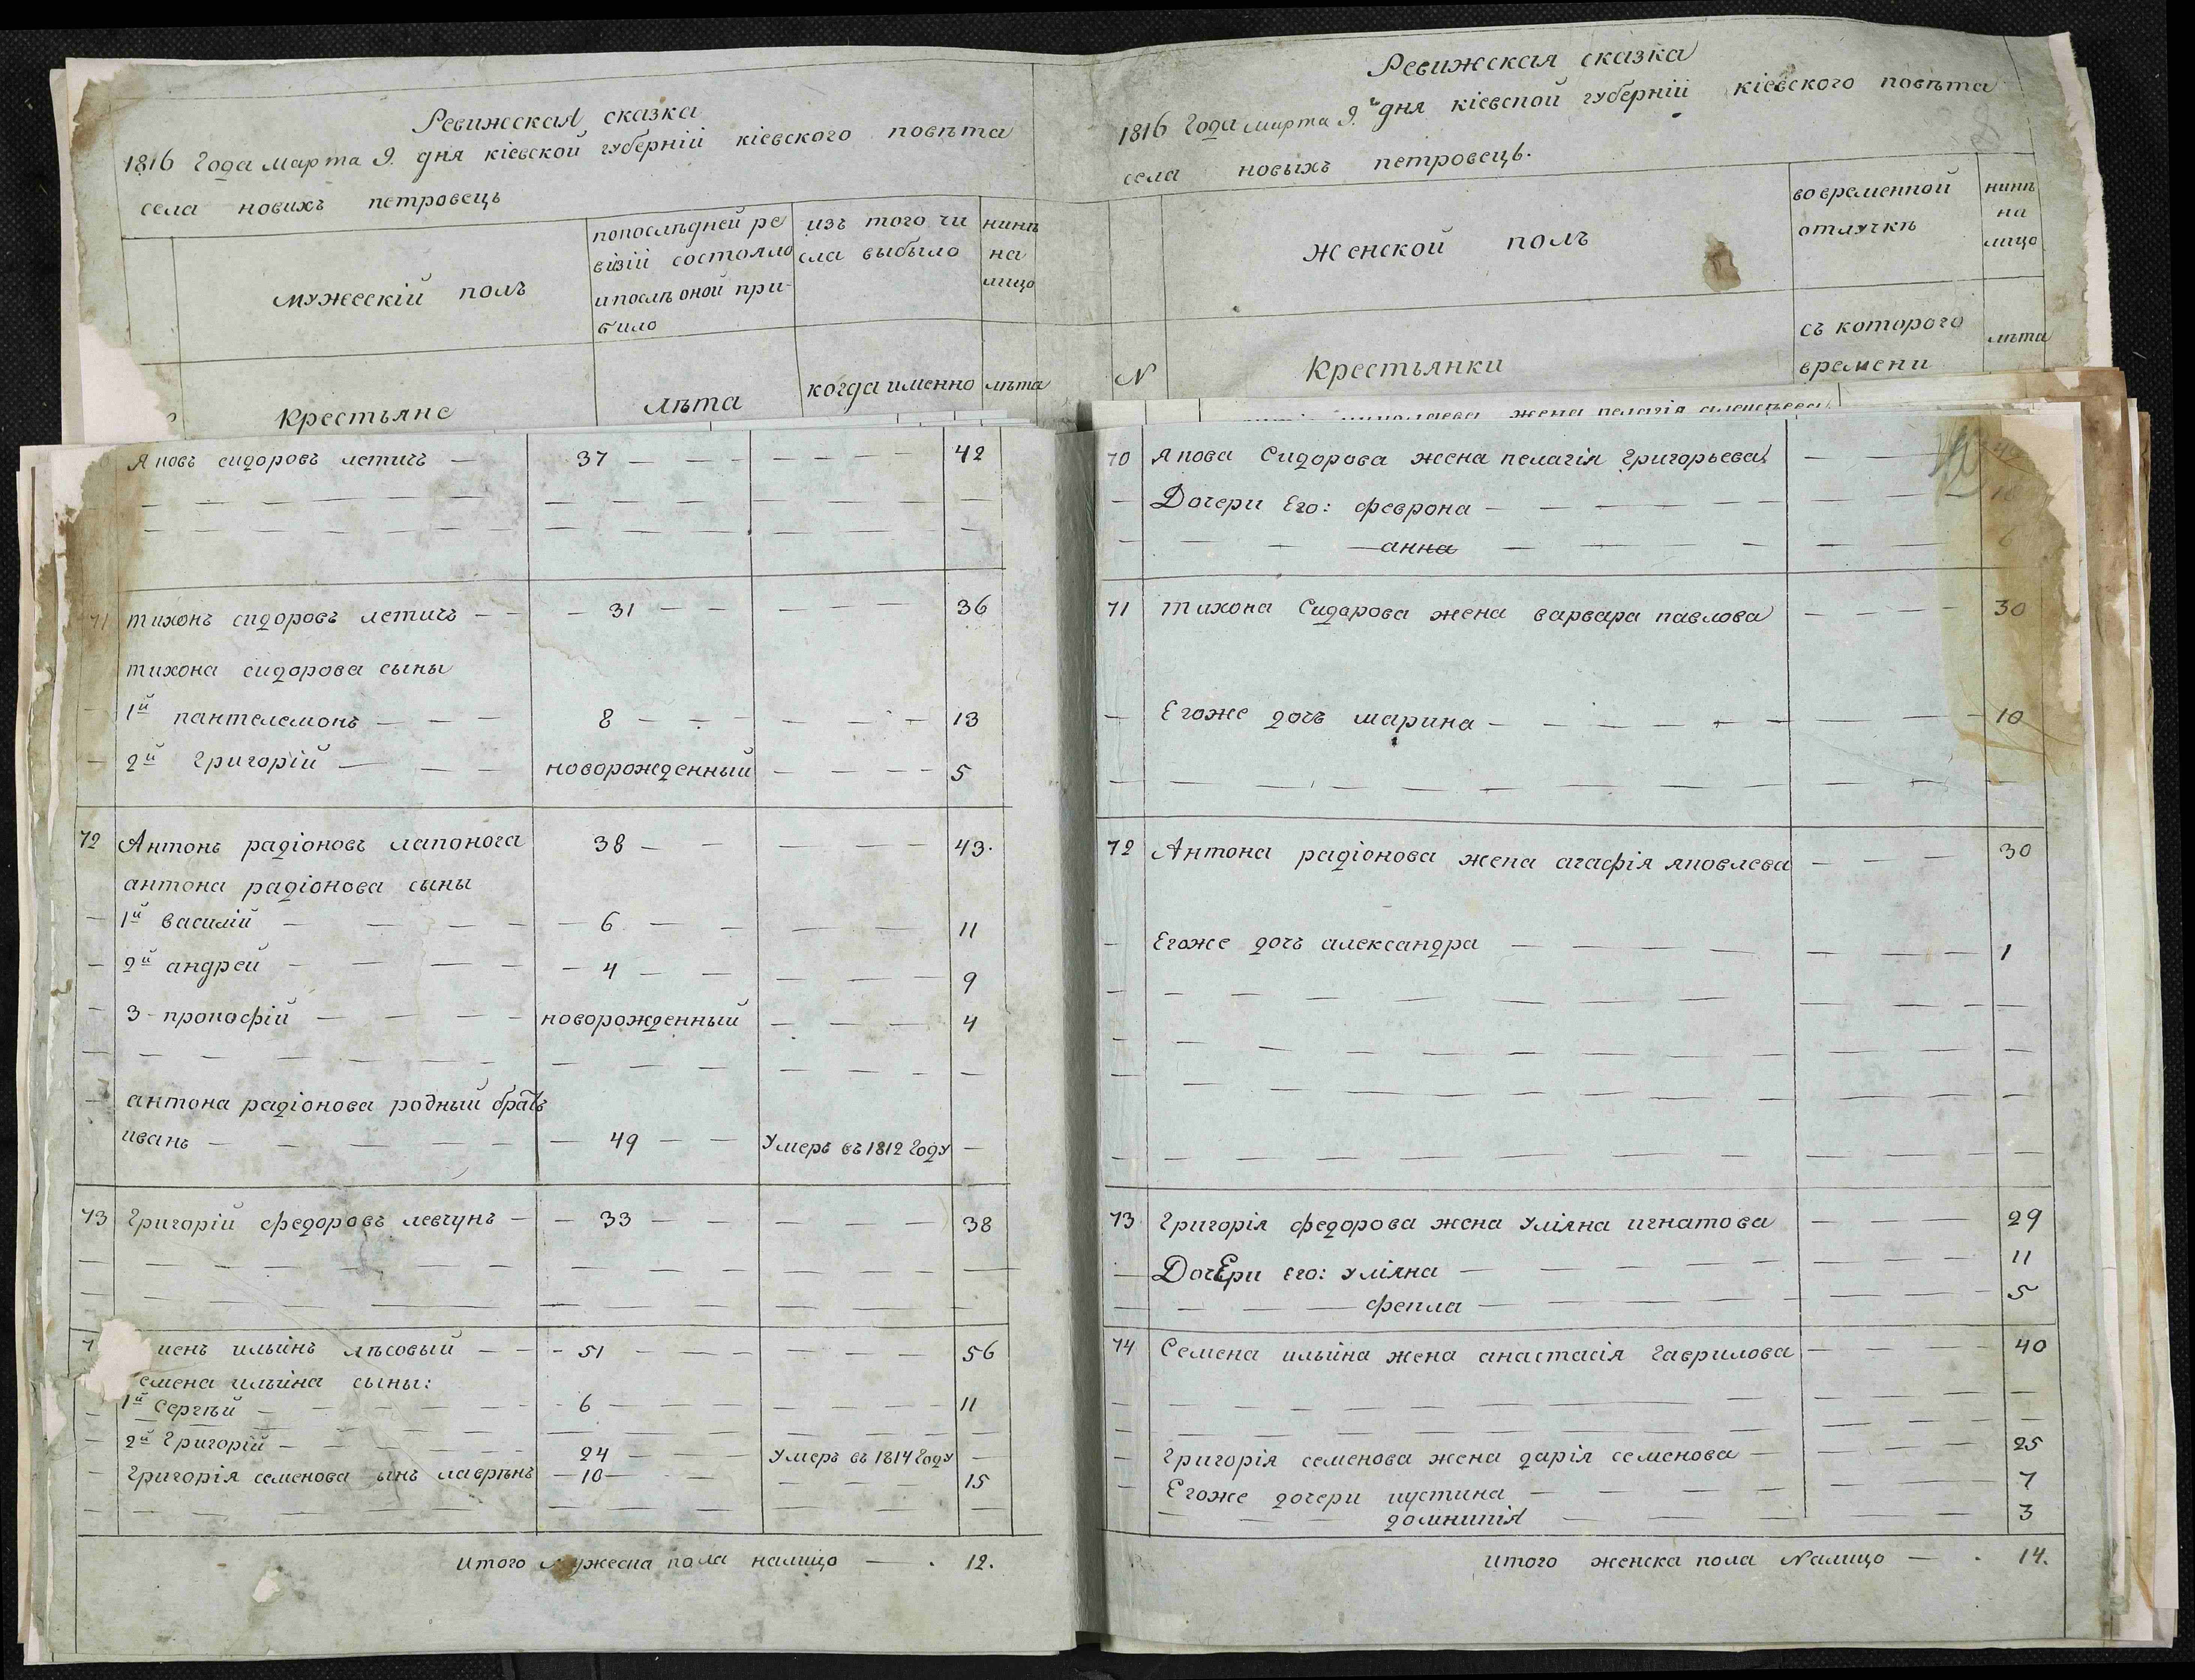 Ревижская сказка
1816 Года марта 9. дня кіевской губерніи кіевского повѣта
села новихъ петровець
мужескій полъ
попослѣдней ре
візіи состояло
ипослѣ оной при-
било
изъ того чи
сла выбыло
нинѣ
на
лицо
крестьяне
лѣта
когда именно
лѣта
Ревижская сказка
1816 Года марта 9. дня кіевской губерніи кіевского повѣта
села новыхъ петровець.
женской полъ
во временной
отлучкѣ
нинѣ
на
лицо
N
Крестьянки
съ которого
времени
лѣта
жена пелагія алексѣева
Яковъ сидоровъ летичъ — 37 — 42
71 тихонъ сидоровъ летичъ — 31 — 36
тихона сидорова сыны
1й пантелемонъ — 8 — 13
2й Григорій — новорожденный — 5
72 Антонъ радіоновъ лапонога 38 — 43.
антона радіонова сыны
— 1й василій — 6 — 11
— 2й андрей — 4 — 9
— 3 - прокофій — новорожденный — 4
— антона радіонова родный братъ
иванъ — 49 — Умеръ въ 1812 Году —
73 Григорій федоровъ левчунъ — 33 — 38
7 менъ ильинъ лѣсовый — 51 — 56
емена ильина сыны:
— 1й Сергѣй — 6 — 11
— 2й Григорій — 24 — Умеръ въ 1814 Году —
— Григорія семенова ынъ лаврѣнъ — 10 — 15
Итого мужеска пола налицо — . 12.
70 Якова Сидорова жена пелагія Григорьева —
— Дочери Его: феврона —
— анна —
71 тихона Сидорова жена варвара павлова — 30
— Егоже дочъ марина — 10
72 Антона радіонова жена агафія яковлева — 30
— Егоже дочъ александра — 1
73 Григорія федорова жена уліяна игнатова — 29
— ДочЕри его: уліяна — 11
— фекла — 5
74 Семена ильина жена анастасія Гаврилова — 40
— Григорія семенова жена дарія семенова — 25
— Егоже дочери иустина — 7
— домникія — 3
Итого женска пола Налицо — . 14.